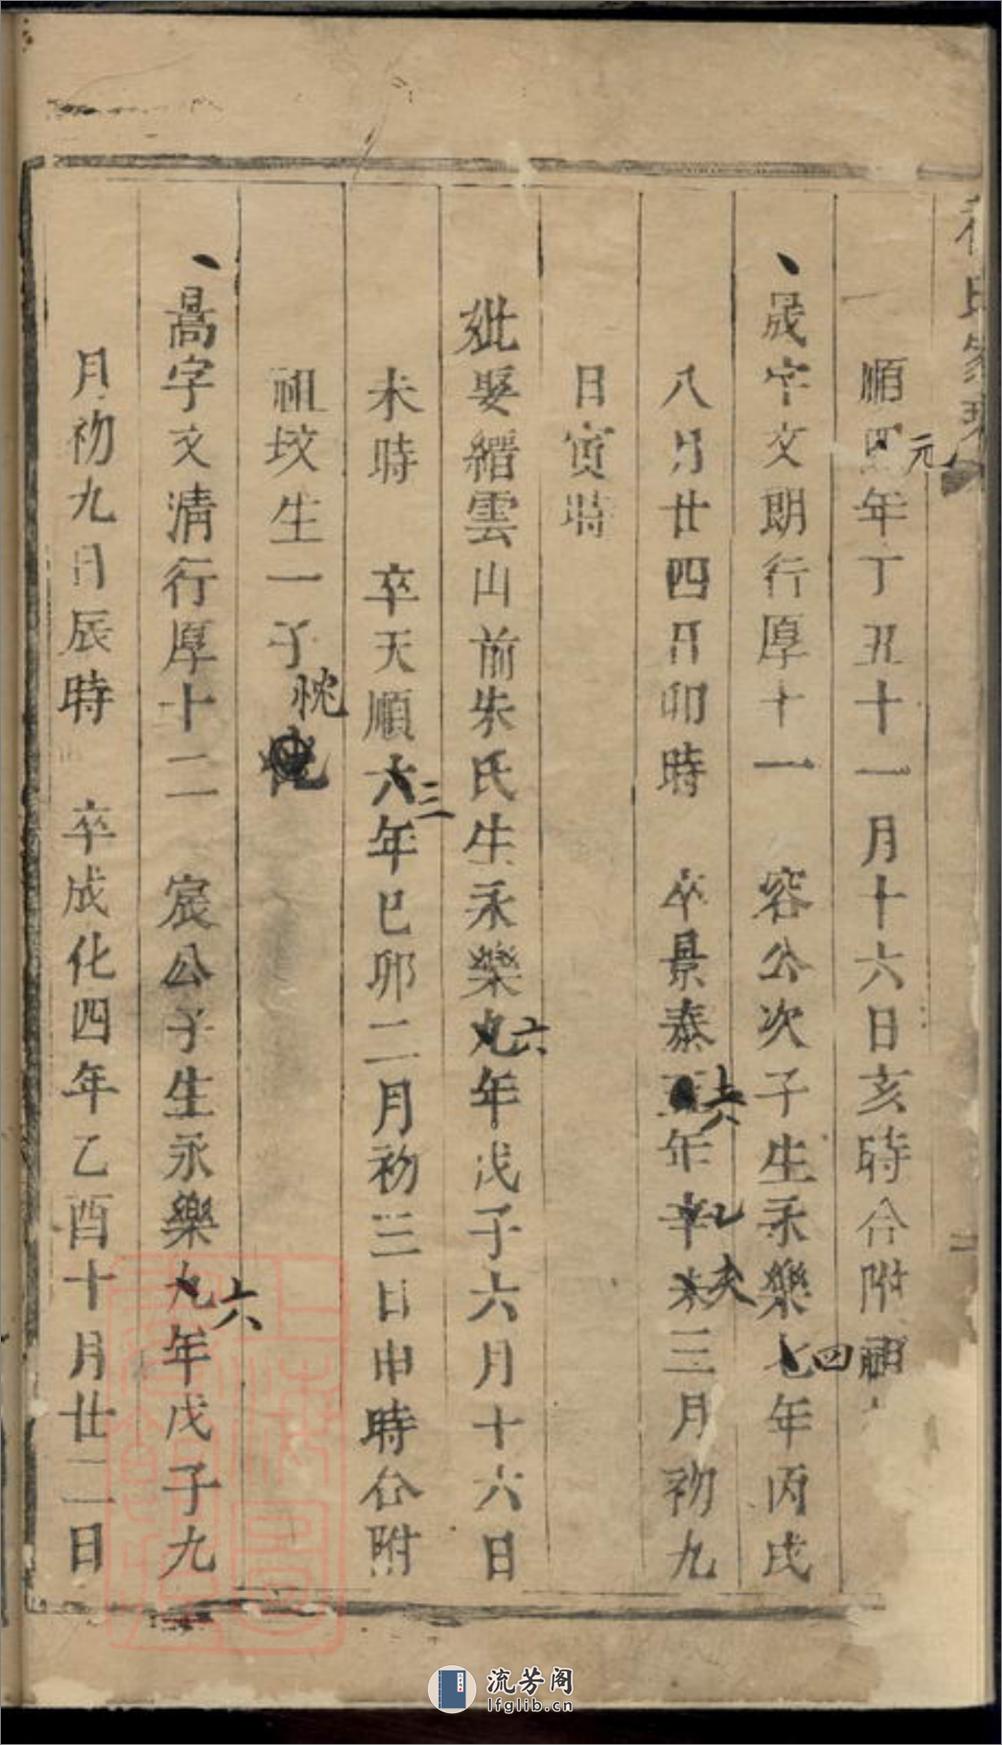 氏家
順四年丁丑十一月十六日亥時合附祖
元
晟字文朗行厚十一　容公次子生永樂七年丙戌
四
八月廿四日卯時　卒景泰五年辛未三月初九
六乙亥
日寅時
妣娶縉雲山前朱氏生永樂九年戊子六月十六日
六
未時　卒天順六年巳卯二月初三日申時合附
三
祖坟生一子
忱
暠字文清行厚十二　宸公子生永樂九年戊子九
六
月初九日辰時　卒成化四年乙酉十月廿二日
流芳阁
lfglib.cn